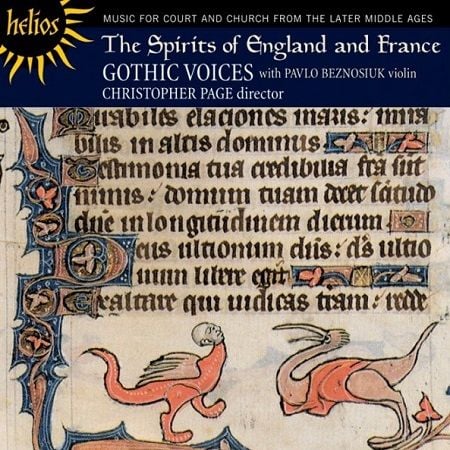 helios
MUSIC FOR COURT AND CHURCH FROM THE LATER MIDDLE AGES
The Spirits of England and France
GOTHIC VOICES with PAVLO BEZNOSIUK violin
CHRISTOPHER PAGE director
Mirabiles elaciones maris: mira
bilis in altis dominus.
Testimonia tua credibilia fca sūt
nimis: domum tuam decet
dn̄e in longitudinem dierum
Deus ultionum dn̄s: ds̄ ultio
num libere egit
Exaltare qui iudicas tram: rede